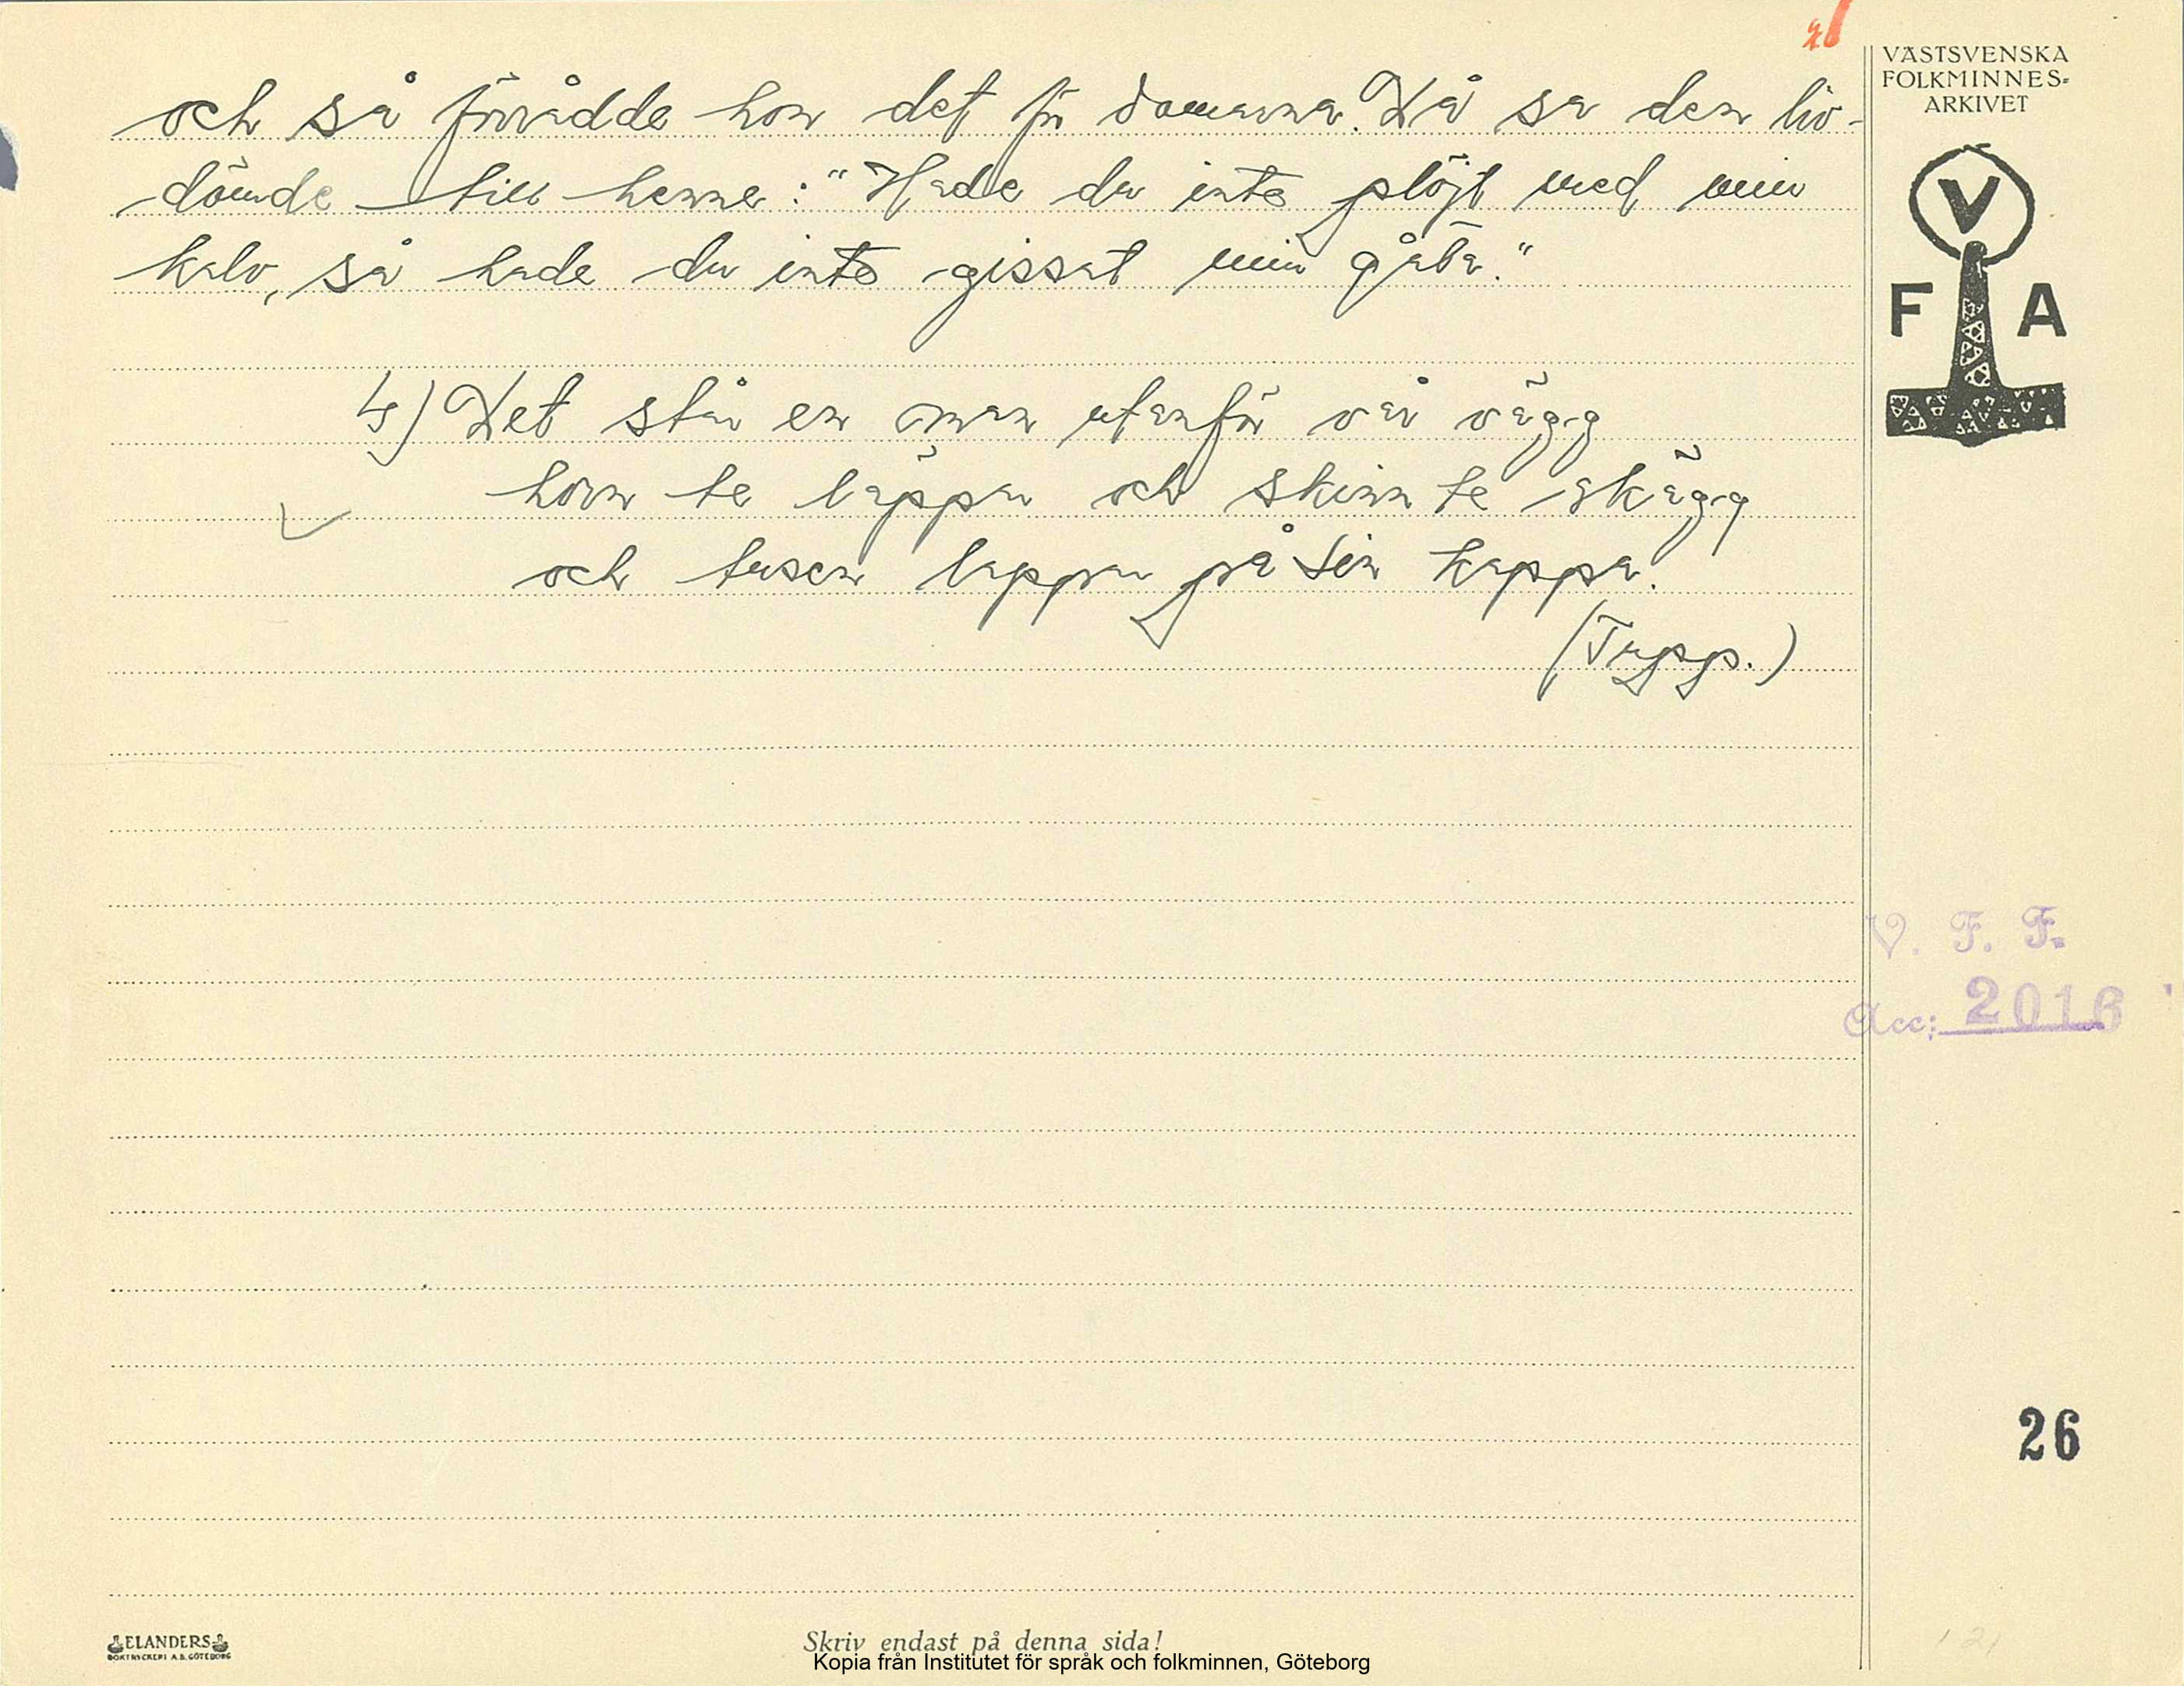 och så förrådde hon det för domarna. Då sa den liv-
dömde till henne: "Hade du inte plöjt med min
kalv, så hade du inte gissat min gåta."
4) Det står en man utanför vår vägg
horn te läppar och skinn te skägg
och tusen lappar på sin kappa.
(Tupp.)
VÄSTSVENSKA
FOLKMINNES-
ARKIVET
V
F A
V. F. F.
Acc: 2016
26
ELANDERS
BOKTRYCKERI A.B. GÖTEBORG
Skriv endast på denna sida!
Kopia från Institutet för språk och folkminnen, Göteborg